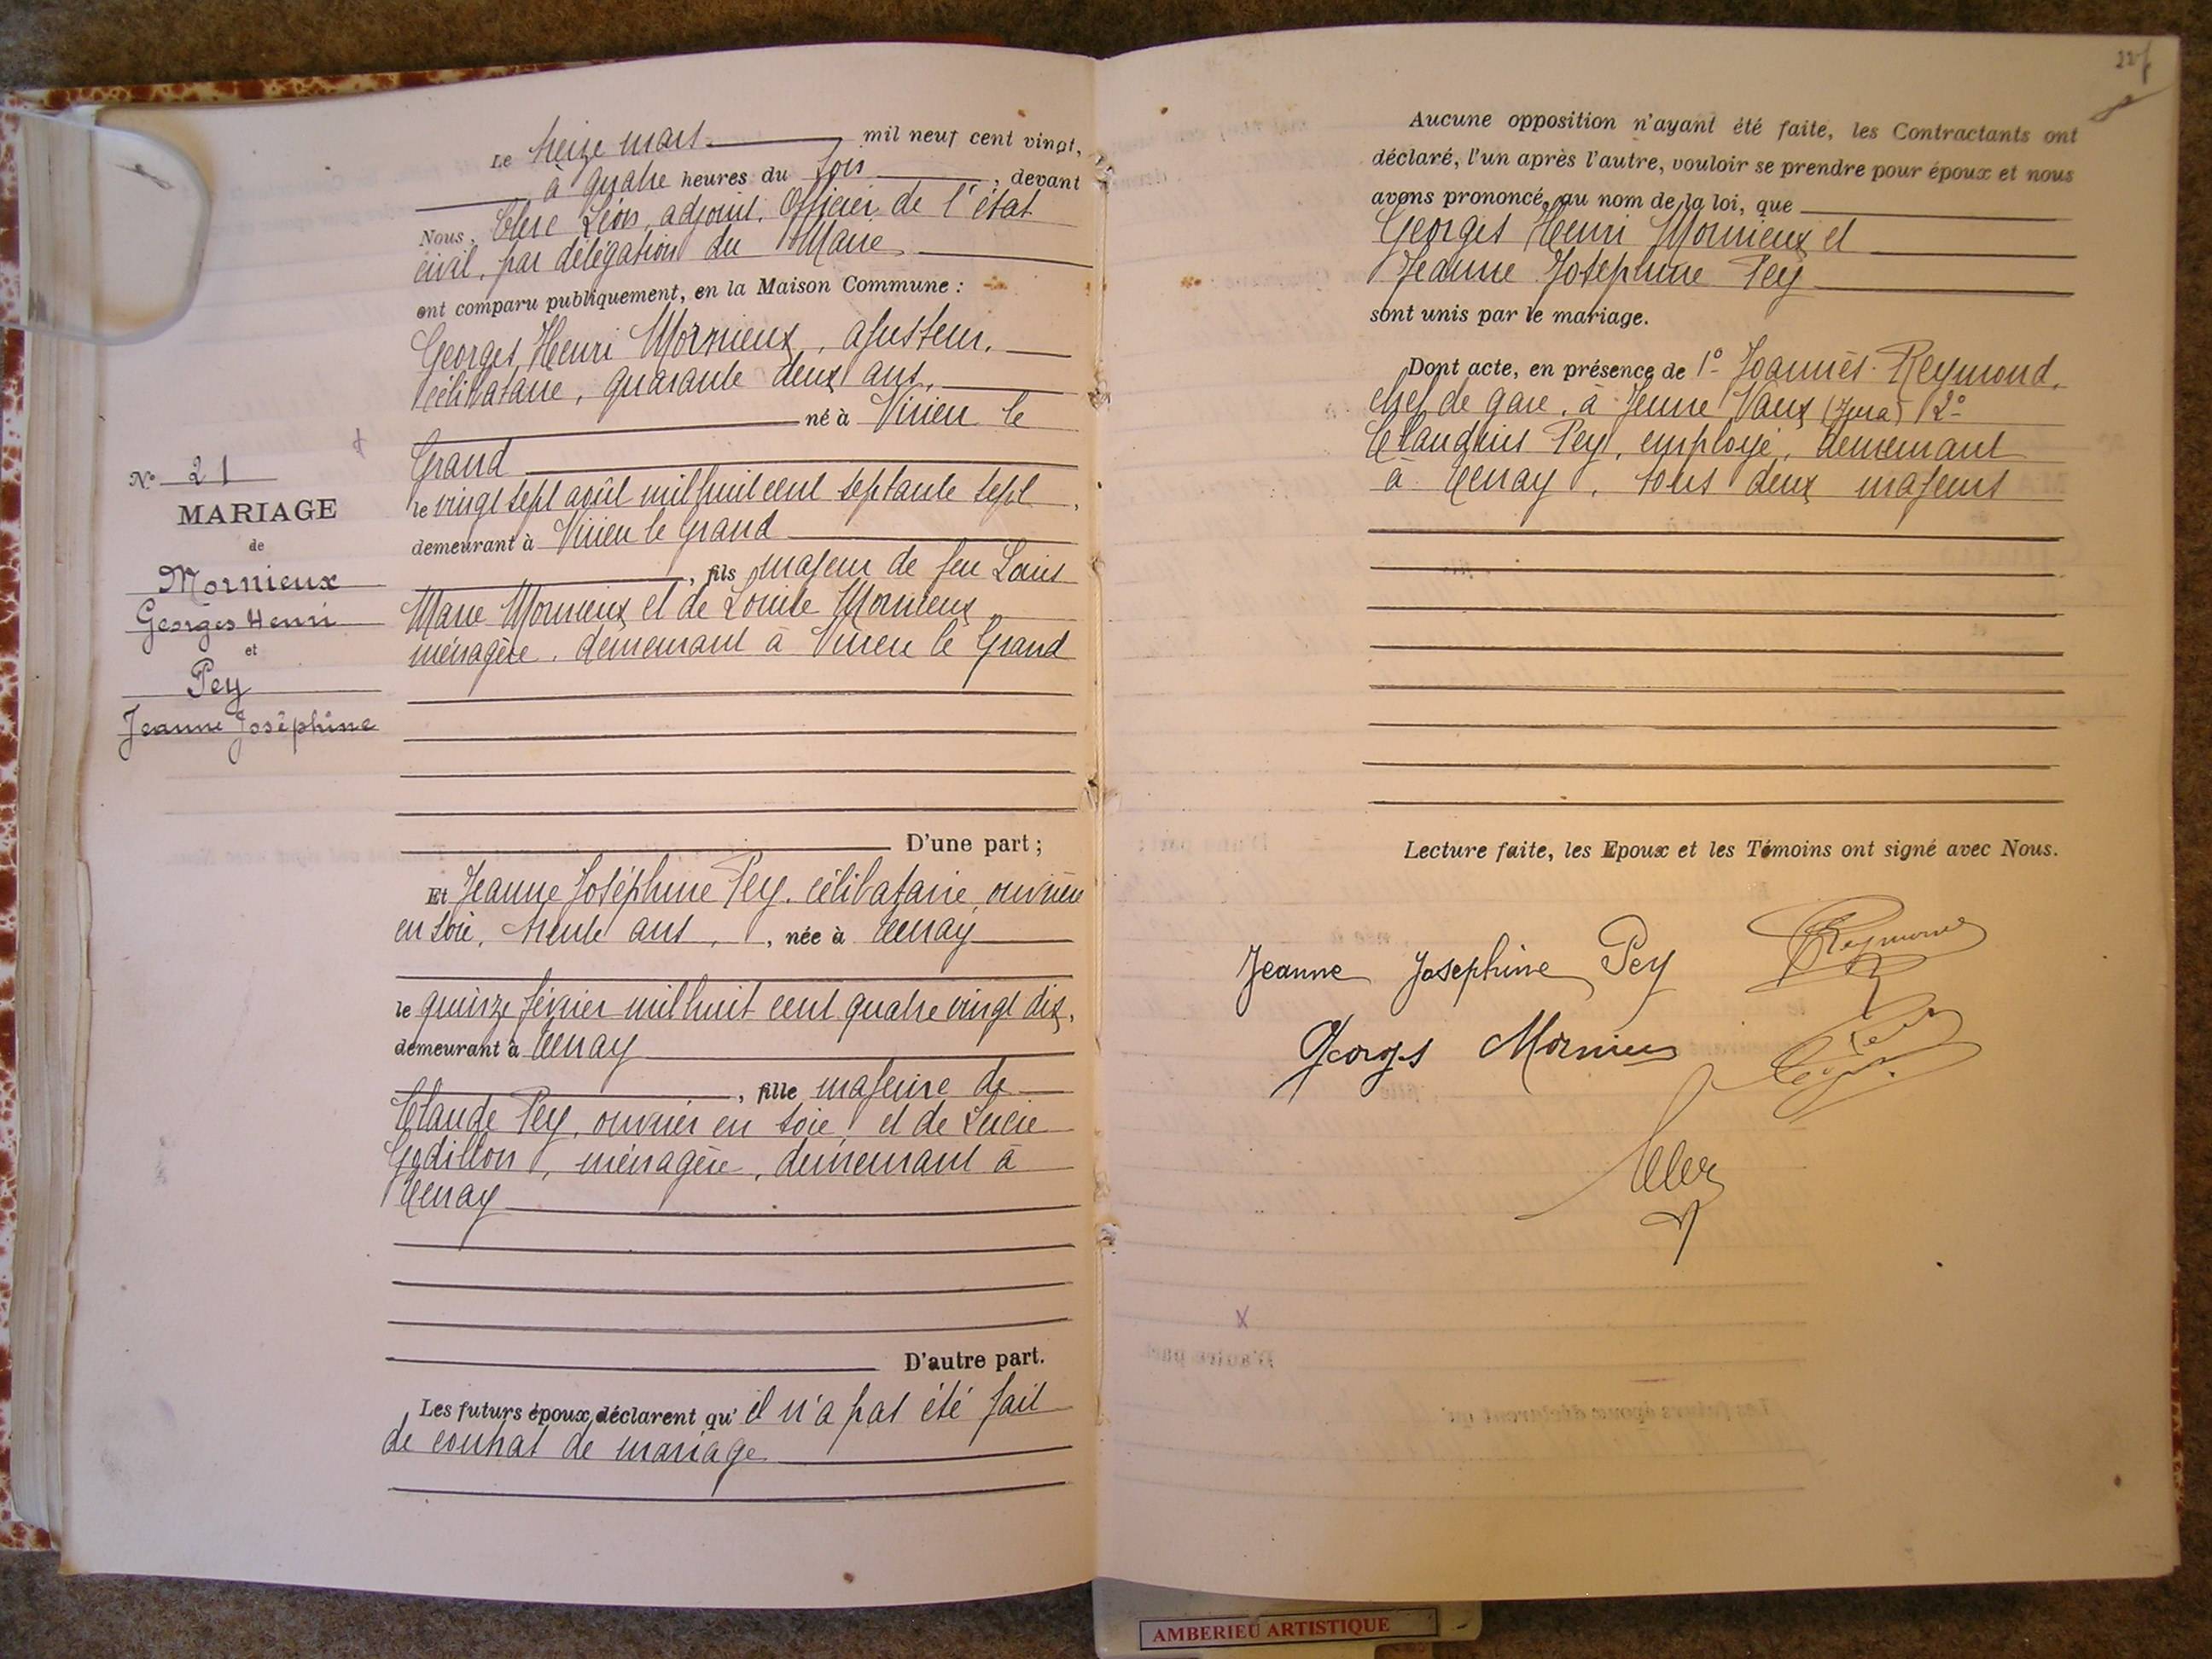 Le treize mars mil neuf cent vingt,
à quatre heures du soir, devant
Nous, Clerc Léon, adjoint, Officier de l'état
civil, par délégation du Maire
ont comparu publiquement, en la Maison Commune :
Georges Henri Mornieux, ajusteur,
célibataire, quarante deux ans,
né à Virieu le
Grand
le vingt sept août mil huit cent septante sept,
demeurant à Virieu le Grand
, fils majeur de feu Louis
Marie Mornieux et de Louise Mornieux
ménagère, demeurant à Virieu le Grand
D'une part ;
Et Jeanne Joséphine Pey, célibataire, ouvrière
en soie, trente ans, , née à Tenay
le quinze février mil huit cent quatre vingt dix,
demeurant à Tenay
, fille majeure de
Claude Pey, ouvrier en soie, et de Lucie
Godillon, ménagère, demeurant à
Tenay
D'autre part.
Les futurs époux déclarent qu' il n'a pas été fait
de contrat de mariage
N° 21
MARIAGE
de
Mornieux
Georges Henri
et
Pey
Jeanne Joséphine
Aucune opposition n'ayant été faite, les Contractants ont
déclaré, l'un après l'autre, vouloir se prendre pour époux et nous
avons prononcé, au nom de la loi, que
Georges Henri Mornieux et
Jeanne Joséphine Pey
sont unis par le mariage.
Dont acte, en présence de 1° Joannès Reymond,
chef de gare, à Jenne Vaux (Jura) 2°
Claudius Pey, employé, demeurant
à Tenay, tous deux majeurs
Lecture faite, les Epoux et les Témoins ont signé avec Nous.
Jeanne Josephine Pey
Reymond
Georges Mornieux
Clerc
AMBERIEU ARTISTIQUE